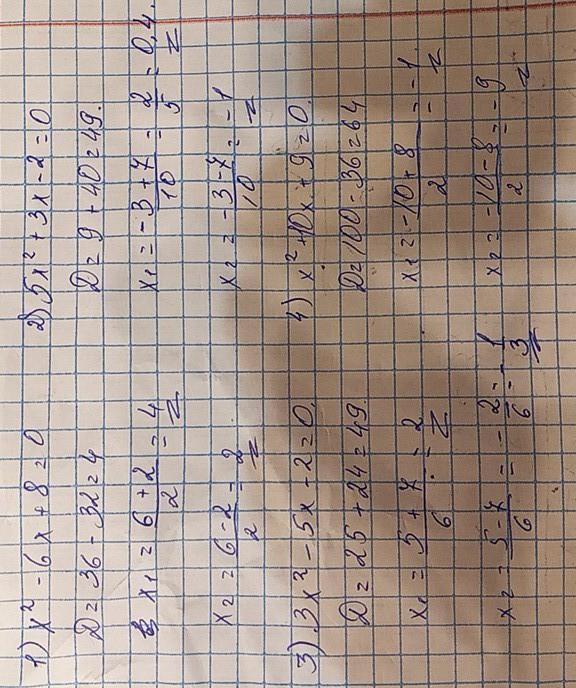 1) x² - 6x + 8 = 0
D = 36 - 32 = 4
x₁ = (6 + 2)/2 = 4
x₂ = (6 - 2)/2 = 2
2) 5x² + 3x - 2 = 0
D = 9 + 40 = 49.
x₁ = (-3 + 7)/10 = 2/5 = 0,4
x₂ = (-3 - 7)/10 = -1
3) 3x² - 5x - 2 = 0.
D = 25 + 24 = 49.
x₁ = (5 + 7)/6 = 2
x₂ = (5 - 7)/6 = -2/6 = -1/3
4) x² + 10x + 9 = 0.
D = 100 - 36 = 64
x₁ = (-10 + 8)/2 = -1
x₂ = (-10 - 8)/2 = -9